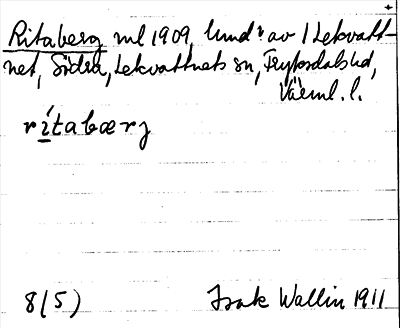 Ritaberg ml 1909, lund av 1 Lekvatt-
net, Södra, Lekvattnets sn, Fryksdals hd,
Värml. l.
rítabærj
8(5) Isak Wallin 1911